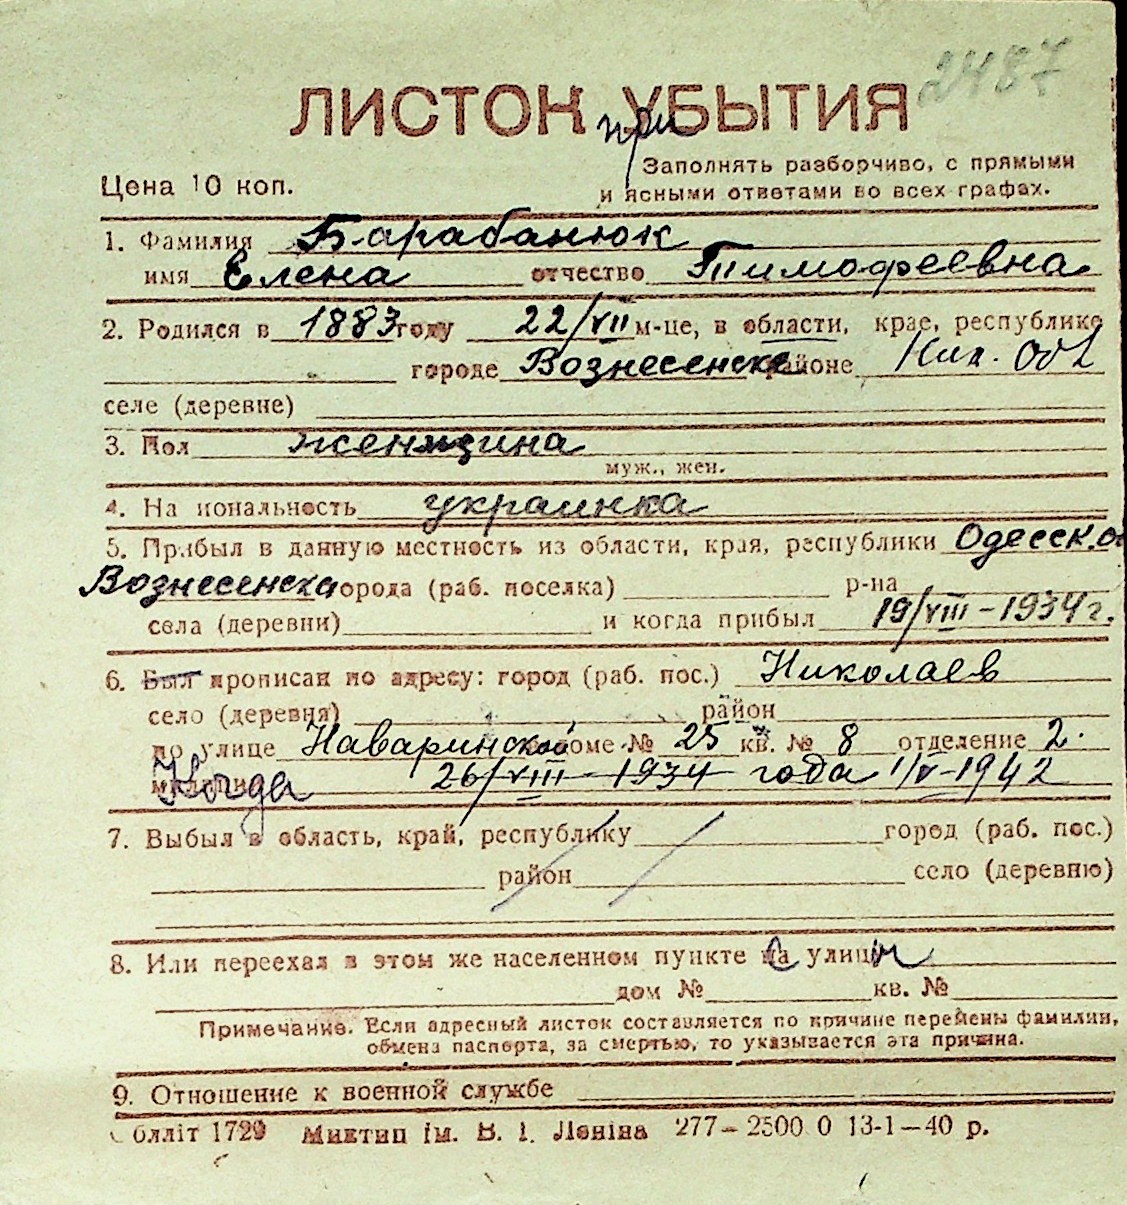 2487
ЛИСТОК УБЫТИЯ
при
Заполнять разборчиво, с прямыми
Цена 10 коп.
и ясными ответами во всех графах.
1. Фамилия Барабанюк
имя Елена отчество Тимофеевна
2. Родился в 1883 году 22/VII м-це, в области, крае, республике
городе Вознесенске районе Ник. Обл
селе (деревне)
3. Пол женщина
муж., жен.
4. На иональность украинка
5. Прибыл в данную местность из области, края, республики Одесск. об
Вознесенска города (раб. поселка) р-на
села (деревни) и когда прибыл 19/VIII-1934 г.
6. Был прописан по адресу: город (раб. пос.) Николаев
село (деревня) район
по улице Наваринской доме № 25 кв. № 8 отделение 2.
милиции Когда 26/VIII-1934 года 1/V-1942
7. Выбыл в область, край, республику город (раб. пос.)
район село (деревню)
8. Или переехал в этом же населенном пункте с улицы
дом № кв. №
Примечание. Если адресный листок составляется по причине перемены фамилии,
обмена паспорта, за смертью, то указывается эта причина.
9. Отношение к военной службе
блліт 1729 Миктип ім. В. І. Леніна 277-2500 0 13-1-40 р.